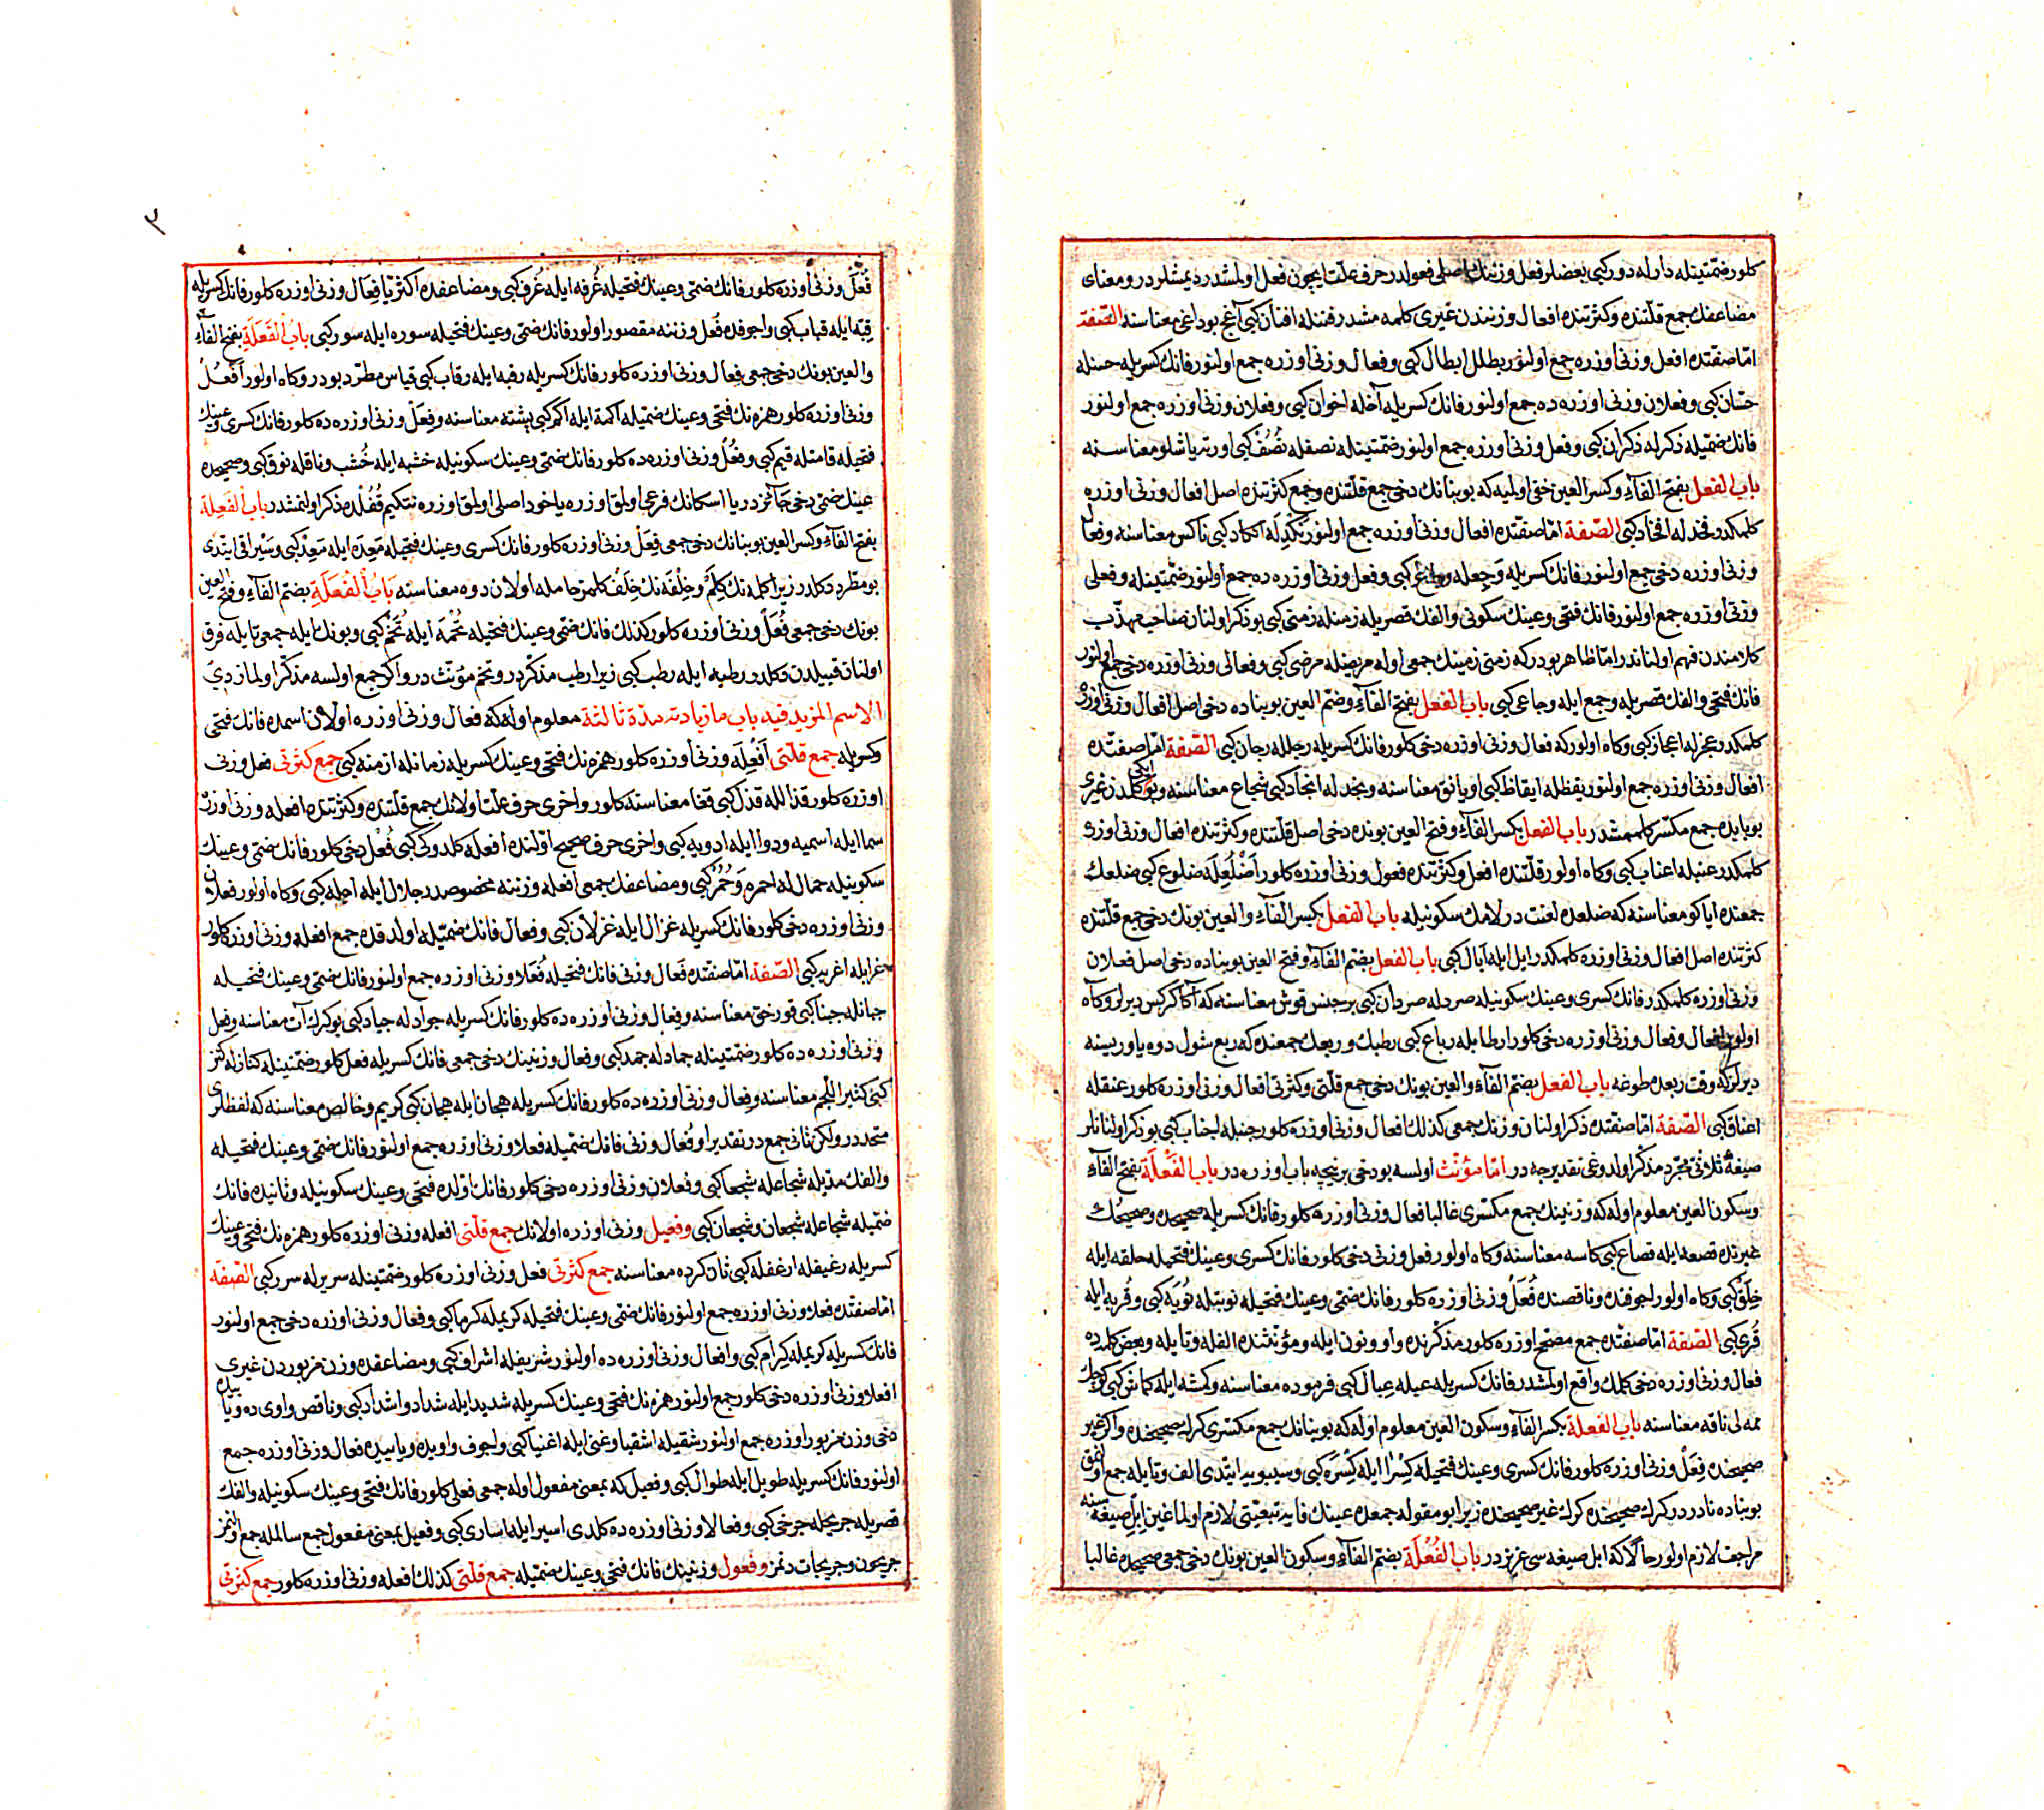 كلور ضمّتينله دارله دور كبی بعضلر فعل وزنینك اصلی فعولدر حرف علّت ایچون فعل اولمشدر دیمشلردر و معنای
مضاعفك جمع قلّتنده و كثرتنده افعال وزنندن غیری كلمه مشدر فننله افنان كبی آغج بوداغی معناسنه الصّفة
امّا صفتده افعل وزنی اوزره جمع اولنور بطلله ابطال كبی و فعال وزنی اوزره جمع اولنور فانك كسریله حسنله
حسان كبی و فعلان وزنی اوزره ده جمع اولنور فانك كسریله آخله اخوان كبی و فعلان وزنی اوزره جمع اولنور
فانك ضمّیله ذكرله ذكران كبی و فعل وزنی اوزره جمع اولنور ضمّتینله نصفله نُصُف كبی اورته یاشلو معناسنه
باب الفعل بفتح الفآء و كسر العین خفی اولمیه كه بو بنانك دخی جمع قلّتنده و جمع كثرتنده اصل افعال وزنی اوزره
كلمكدر فخذله افخاذ كبی الصّفة امّا صفتده افعال وزنی اوزره جمع اولنور نكدله انكاد كبی ناكس معناسنه و فعال
وزنی اوزره دخی جمع اولنور فانك كسریله وجعله وجاع كبی و فعل وزنی اوزره ده جمع اولنور ضمّتینله و فعلی
وزنی اوزره جمع اولنور فانك فتحی و عینك سكونی و الفك قصریله زمنله زمنی كبی بو ذكر اولنان صاحب مهذّب
كلامندن فهم اولناندر امّا ظاهر بودر كه زمنی زمینك جمعی اوله مریضله مرضی كبی و فعالی وزنی اوزره دخی جمع اولنور
فانك فتحی و الفك قصریله وجع ایله وجاعی كبی باب الفعل بفتح الفآء و ضمّ العین بو بناده دخی اصل افعال وزنی اوزره
كلمكدر عجزله اعجاز كبی و كاه اولور كه فعال وزنی اوزره دخی كلور فانك كسریله رجلله رجال كبی الصّفة امّا صفتده
افعال وزنی اوزره جمع اولنور یقظله ایقاظ كبی اویانق معناسنه و نجدله انجاد كبی شجاع معناسنه و بو ایكی كلمه دن غیری
بو بابده جمع مكسّر كلممشدر باب الفعل بكسر الفآء و فتح العین بونده دخی اصل قلّتنده و كثرتنده افعال وزنی اوزره
كلمكدر عنبله اعناب كبی و كاه اولور قلّتنده افعل و كثرتنده فعول وزنی اوزره كلور اضلعله ضلوع كبی ضلعك
جمعنده ایاكو معناسنه كه ضلعده لغت در لامك سكونیله باب الفعل بكسر الفآء و العین بونك دخی جمع قلّتنده
كثرتنده اصل افعال وزنی اوزره كلمكدر ابل ایله آبال كبی باب الفعل بضمّ الفآء و فتح العین بو بناده دخی اصل فعلان
وزنی اوزره كلمكدر فانك كسری و عینك سكونیله صردله صردان كبی بر جنس قوش معناسنه كه آكا كركس دیرلر و كاه
اولور افعال و فعال وزنی اوزره دخی كلور ارطابله رباع كبی رطبك و ربعك جمعنده كه ربع شول دوه یاوریسنه
دیرلر كه وقت ربعده طوغه باب الفعل بضمّ الفآء و العین بونك دخی جمع قلّتی و كثرتی افعال وزنی اوزره كلور عنقله
اعناق كبی الصّفة امّا صفتده ذكر اولنان وزنك جمعی كذلك افعال وزنی اوزره كلور جنبله اجناب كبی بو ذكر اولنانلر
صیغهٔ ثلاثی مجرّد مذكّر اولدوغی تقدیرجه در امّا مؤنّث اولسه بو دخی برنیچه باب اوزره در باب الفَعْلَة بفتح الفآء
و سكون العین معلوم اوله كه وزنینك جمع مكسّری غالبا فعال وزنی اوزره كلور فانك كسریله صحیحده و صحیحك
غیرنده قصعه ایله قصاع كبی كاسه معناسنه و كاه اولور فعل وزنی دخی كلور فانك كسری و عینك فتحیله حلقه ایله
حِلَقٌ كبی و كاه اولور اجوفنده و ناقصنده فُعَلٌ وزنی اوزره كلور فانك ضمّی و عینك فتحیله نوبتله نُوَبٌ كبی و قُریه ایله
قُری كبی الصّفة امّا صفتده جمع مصحّح اوزره كلور مذكّرنده واو و نون ایله و مؤنّثنده الفله و تا یله و بعض كلمه ده
فعال وزنی اوزره دخی كلمك واقع اولمشدر فانك كسریله عبله عبال كبی فربوده معناسنه و كمشه ایله كماش كبی كوچك
ممه لی ناقه معناسنه باب الفعلة بكسر الفآء و سكون العین معلوم اوله كه بو بنانك جمع مكسّری كرك صحیحنده و اكر غیر
صحیحنده فِعَلٌ وزنی اوزره كلور فانك كسری و عینك فتحیله كِسَرْ ایله كِسْرَه كبی و سیبویه ایتدی الف و تا یله جمع اولنمق
بو بناده نادردر كرك صحیحنده كرك غیر صحیحنده زیرا بو مقوله جمعده عینك فایه تبعیّتی لازم اولمغین ابل صیغه سنه
مراجعت لازم اولور حالا كه ابل صیغه سی عزیزدر باب الفُعْلَة بضمّ الفآء و سكون العین بونك دخی جمعی صحیحده غالبا
٣
فُعَلٌ وزنی اوزره كلور فانك ضمّی و عینك فتحیله غُرفه ایله غُرف كبی و مضاعفده اكثریّا فِعَال وزنی اوزره كلور فانك كسریله
قبّه ایله قباب كبی و اجوفده فُعَل وزننه مقصور اولور فانك ضمّی و عینك فتحیله سوره ایله سور كبی باب الفَعَلَة بفتح الفآء
و العین بونك دخی جمعی فعال وزنی اوزره كلور فانك كسریله رقبه ایله رقاب كبی قیاس مطّرد بودر و كاه اولور اَفْعُلُ
وزنی اوزره كلور همزه نك فتحی و عینك ضمّیله اكمة ایله اكم كبی پشته معناسنه و فِعَلٌ وزنی اوزره ده كلور فانك كسری و عینك
فتحیله قامتله قیم كبی و فُعْلٌ وزنی اوزره ده كلور فانك ضمّی و عینك سكونیله خشبه ایله خُشب و ناقله نوق كبی و صحیحده
عینك ضمّی دخی جآئزدر یا اسكانك فرعی اولمق اوزره یاخود اصلی اولمق اوزره نتكیم قُفْلده مذكر اولنمشدر باب الفَعِلة
بفتح الفآء و كسر العین بو بنانك دخی جمعی فِعَلٌ وزنی اوزره كلور فانك كسری و عینك فتحیله مَعِدَه ایله مِعَدٌ كبی و سیرافی ایتدی
بو مطّرد دكلدر زیرا كلمه نك كِلَمٌ و خَلِفَه نك خِلَفٌ كلمز حامله اولان دوه معناسنه بَابُ الْفُعَلَةِ بضمّ الفآء و فتح العین
بونك دخی جمعی فُعَلٌ وزنی اوزره كلور كذلك فانك ضمّی و عینك فتحیله تُخَمَه ایله تُخَمٌ كبی و بونك ایله جمعی تا یله فرق
اولنان قبیلدن دكلدر رطبه ایله رطب كبی زیرا رطب مذكّردر و تخم مؤنّث در و اكر جمع اولسه مذكّر اولمازدی
الاسم المزید فیه باب ما زیادته مدّة ثالثة معلوم اوله كه فعال وزنی اوزره اولان اسمده فانك فتحی
و كسریله جمع قلّتی اَفْعِلَه وزنی اوزره كلور همزه نك فتحی و عینك كسریله زمانله ازمنه كبی جمع كثرتی فعل وزنی
اوزره كلور قذالله قذل كبی قفا معناسنه كلور و آخری حرف علّت اولانك جمع قلّتنده و كثرتنده افعله وزنی اوزره
سما ایله اسمیه و دوا ایله ادویه كبی و آخری حرف صحیح اولنده افعله كلدوكی كبی فُعْل دخی كلور فانك ضمّی و عینك
سكونیله حمارله احمره وَ حُمُرٌ كبی و مضاعفك جمعی افعله وزننه مخصوصدر جلال ایله اجله كبی و كاه اولور فعلان
وزنی اوزره دخی كلور فانك كسریله غزال ایله غزلان كبی و فعال فانك ضمّیله اولدقده جمع افعله وزنی اوزره كلور
غرابله اغربه كبی الصّفة امّا صفتده فَعال وزنی فانك فتحیله فُعَلا وزنی اوزره جمع اولنور فانك ضمّی و عینك فتحیله
جبانله جبنا كبی قورخق معناسنه و فِعال وزنی اوزره ده كلور فانك كسریله جوادله جیاد كبی یوكرك آت معناسنه و فعل
وزنی اوزره ده كلور ضمّتینله جمادله جمد كبی و فعال وزنینك دخی جمعی فانك كسریله فعل كلور ضمّتینله كنازله كنز
كبی كثیر اللّحم معناسنه و فِعال وزنی اوزره ده كلور فانك كسریله هجان ایله هجان كبی كریم و خالص معناسنه كه لفظلری
متّحددر ولكن ثانی جمع در تقدیرا و فُعال وزنی فانك ضمّیله فعلا وزنی اوزره جمع اولنور فانك ضمّی و عینك فتحیله
و الفك مدّیله شجاعله شجعا كبی و فعلان وزنی اوزره دخی كلور فانك اوّلده فتحی و عینك سكونیله و ثانیده فانك
ضمّیله شجاعله شجعان و شجعان كبی و فعیل وزنی اوزره اولانك جمع قلّتی افعله وزنی اوزره كلور همزه نك فتحی و عینك
كسریله رغیفله ارغفله كبی نان كرده معناسنه جمع كثرتی فعل وزنی اوزره كلور ضمّتینله سریرله سرر كبی الصّفة
امّا صفتده فعلا وزنی اوزره جمع اولنور فانك ضمّی و عینك فتحیله كریمله كرما كبی و فعال وزنی اوزره دخی جمع اولنور
فانك كسریله كریمله كرام كبی و افعال وزنی اوزره ده اولنور شریفله اشراف كبی و مضاعفده وزن مزبوردن غیری
افعلا وزنی اوزره دخی كلور جمع اولنور همزه نك فتحی و عینك كسریله شدید ایله شداد و اشداد كبی و ناقص واوی ده و یائیده
دخی وزن مزبور اوزره جمع اولنور شقیله اشقیا و غنی ایله اغنیا كبی و اجوف واویده و یاییده فعال وزنی اوزره جمع
اولنور فانك كسریله طویل ایله طوال كبی و فعیل كه بمعنی مفعول اوله جمعی فعلی كلور فانك فتحی و عینك سكونیله و الفك
قصریله جریحله جرحی كبی و فعالا وزنی اوزره ده كلدی اسیر ایله اساری كبی و فعیل بمعنی مفعول جمع سالمله جمع اولنمز
جریحون و جریحات دنمز و فعول وزنینك فانك فتحی و عینك ضمّیله جمع قلّتی كذلك افعله وزنی اوزره كلور جمع كثرتی